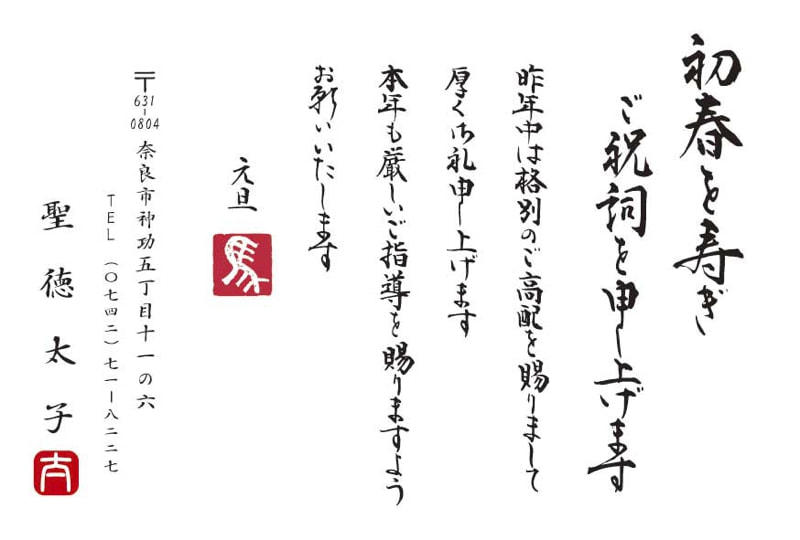 初春を寿ぎ
ご祝詞を申し上げます
昨年中は格別のご高配を賜りまして
厚く御礼申し上げます
本年も厳しいご指導を賜りますよう
お願いいたします
元旦
馬
〒631-0804
奈良市神功五丁目十一の六
TEL（〇七四二）七一ー八二二七
聖徳太子